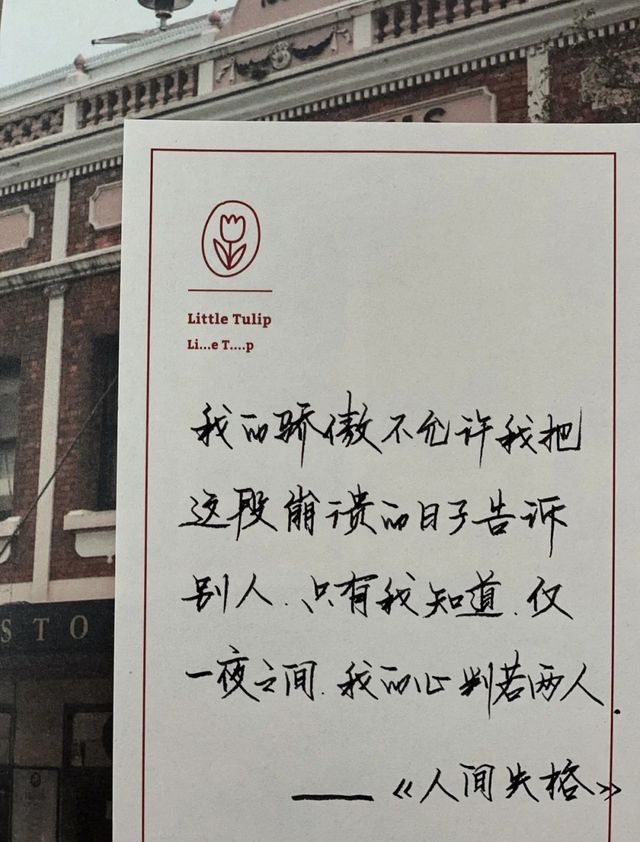 Little Tulip
Li...e T....p
我的骄傲不允许我把
这段崩溃的日子告诉
别人.只有我知道.仅
一夜之间.我的心判若两人.
——《人间失格》
STO